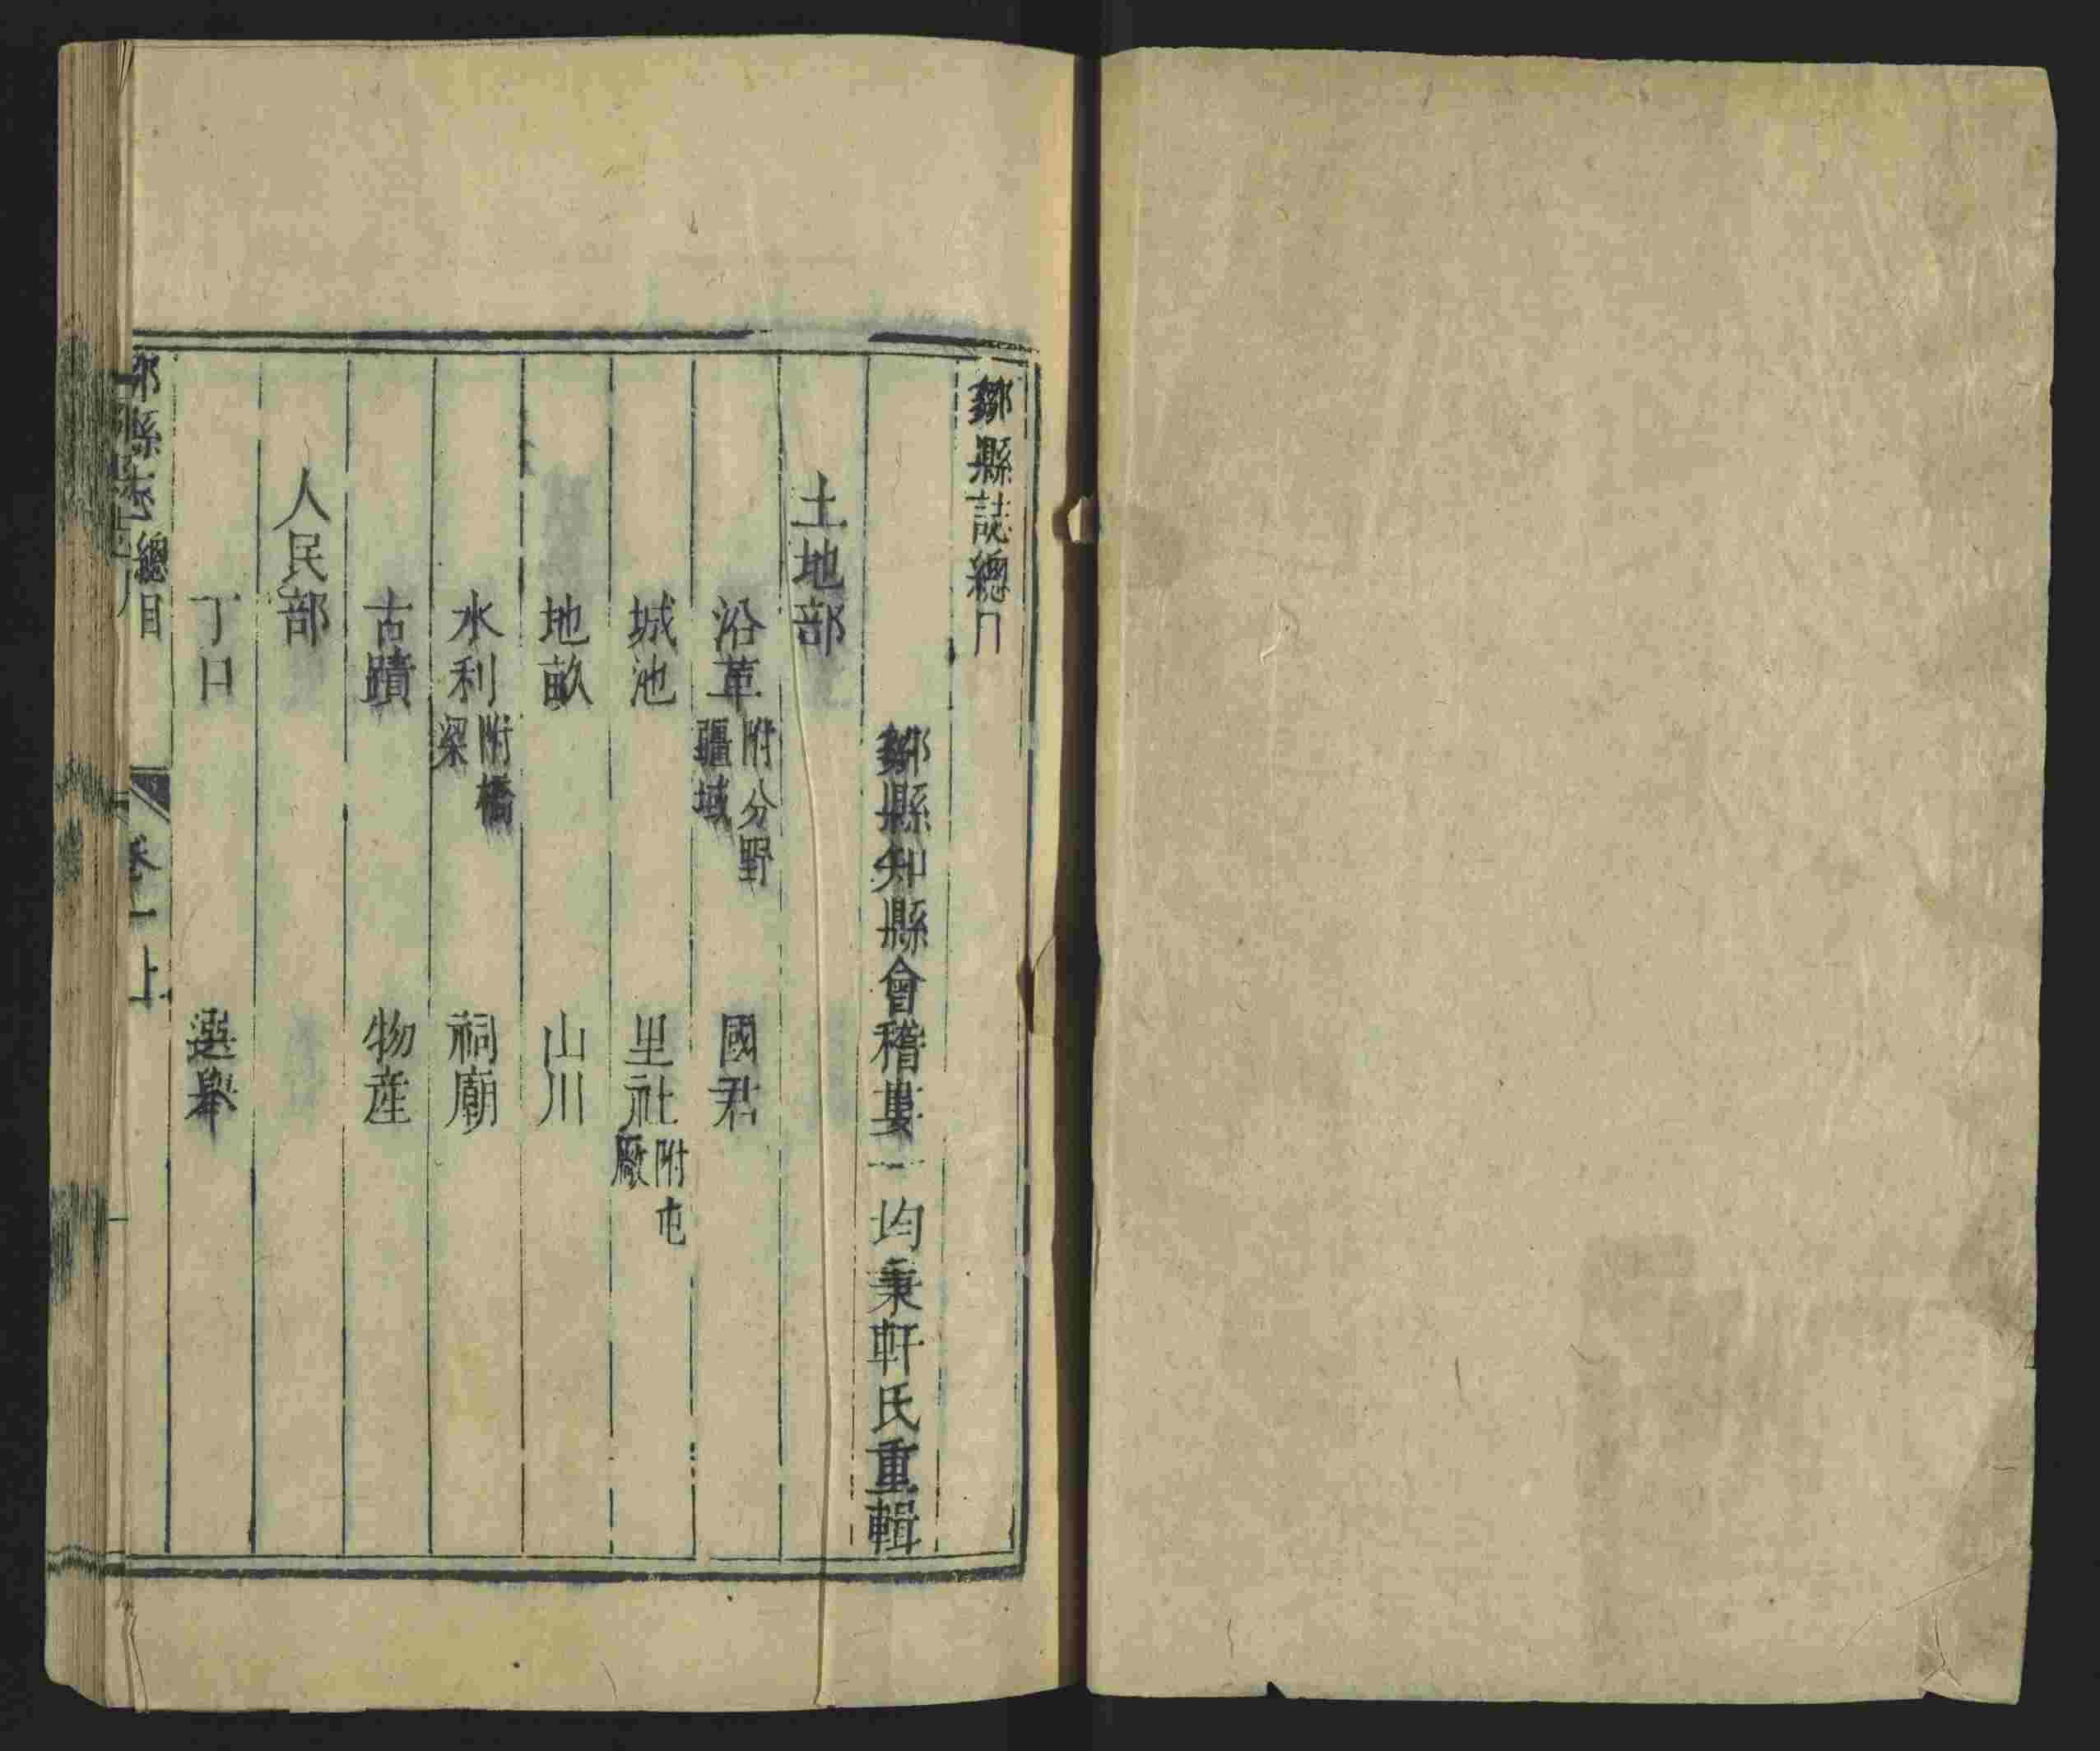 鄒縣誌總目
鄒縣知縣會稽婁一均秉軒氏重輯
土地部
沿革附分野疆域 國君
城池 里社附屯廠
地畝 山川
水利附橋梁 祠廟
古蹟 物産
人民部
丁口 選舉
鄒縣志 總目 卷一上